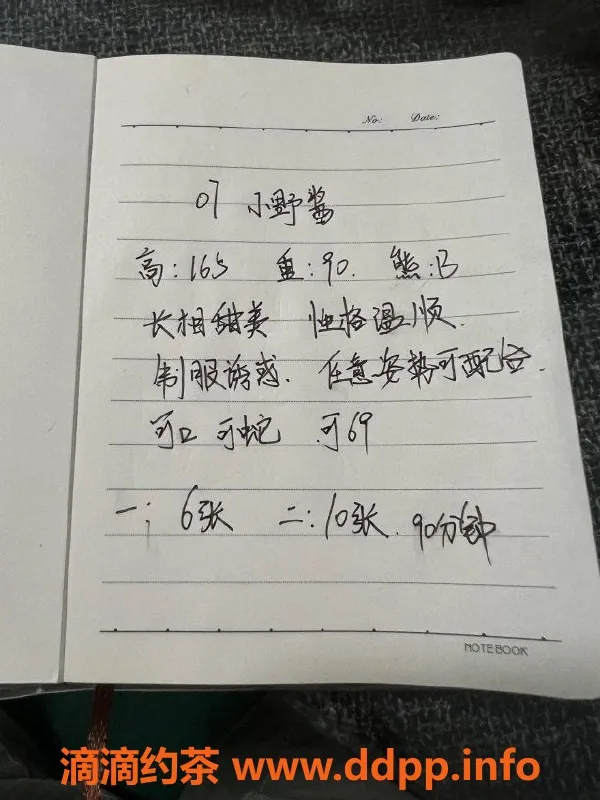 No: Date:
07 小野酱
高:165 重:90. 熊:B
长相甜美 性格温顺.
制服诱惑. 任意姿势可配合.
可口 可蛇 可69
一: 6张 二:10张. 90分钟
NOTEBOOK
滴滴约茶 www.ddpp.info